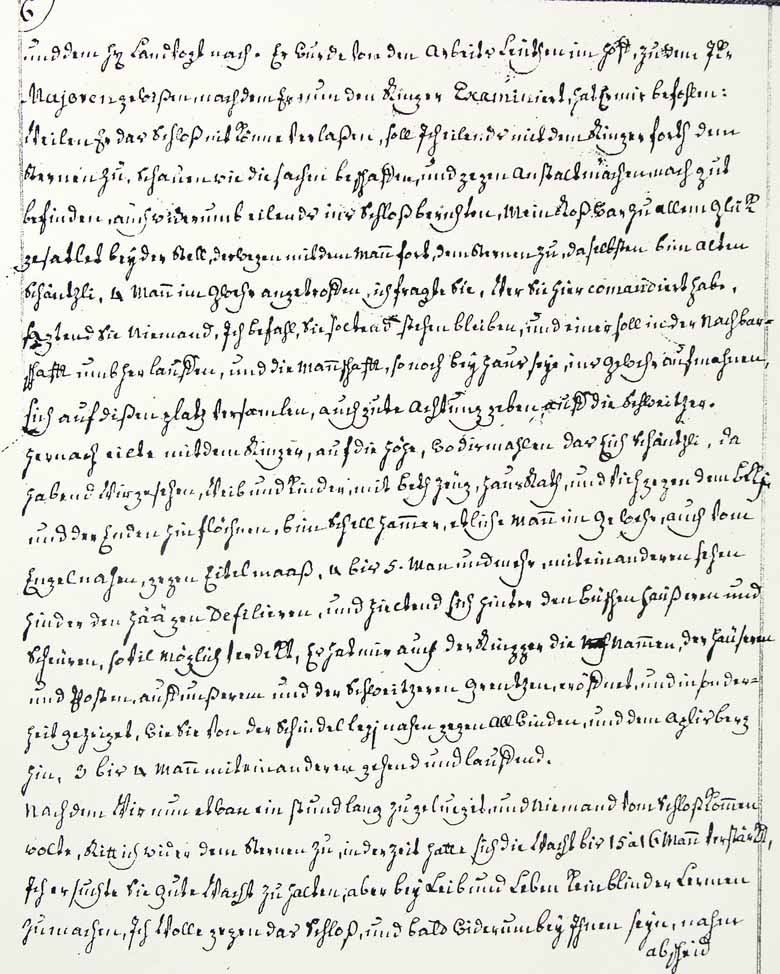 6
und dem Hr Landvogt nach. Er wurde von den Arbeits Leüthen im Hoff, zu dem Jkr
Majoren gewißen nach dem Er nun den Ringger Examiniert, hat Er mir befohlen:
Weilen Er das Schloß nit könne verlaßen, soll Ich eilends mit dem Ringger forth dem
Sternen zu, schauen wie die sachen beschaffen, und gegen Anstalt machen, nach gut
befinden, auch widerumb eilends ins Schloß berichten, Mein Roß war zu allem Glük
gesatlet bey der Stell, derwegen mit dem Mañ fort, dem Sternen zu, daselbsten bim alten
Schäntzli, 4 Mañ im Gwehr angetroffen, ich fragte Sie, Wer Sie hier comandiert habe,
sagtend Sie Niemand, Ich befahl, Sie soltend stehen bleiben, und einer soll in der Nachbar-
schafft umbher lauffen, und die Mannschafft, so noch bey Haus seye, ins Gwehr aufmahnen,
sich auf dißen platz versamlen, auch gute Achtung geben auff die Schweitzer.
Hernach eilte mit dem Ringger, auf die Höhe, wo dismahlen das Eich Schäntzli, da
habend Wir gesehen, Weib und Kinder, mit beth zeüg, Haus Rath, und Vich gegen dem
und der Enden hin flöchnen, bim Schell Hammer, etliche Mann im Gewehr, auch vom
Engel nahen, gegen Eitelmaaß, 4 bis 5. Man und mehr miteinanderen sehen
hinder den Häägen Defilieren, und hieltend sich hinter den Büschen Haüßeren und
Scheüren, so vil möglich verdekt, Er hat mir auch der Ringger die Nammen, der Haüseren
und Posten, auf unßerem und der Schweitzeren Grentzen, eröffnet, und in sonder-
heit gezeiget, wie Sie von der Schindellegj nahen gegen Allwinden, und dem
hin, 3 bis 4 Mañ miteinanderen gehend und lauffend.
Nach dem Wir nun etwan ein stund lang zugeluegt, und Niemand vom Schloß kommen
wolte, Ritt ich wider dem Sternen zu, in der zeit hatte sich die Wacht bis 15 à 16 Mañ verstärkt,
Ich ersuchte Sie gute Wacht zu halten, aber bey Leib und Leben kein blinder Lermen
zumachen, Ich Wolle gegen das Schloß, und bald widerum bey Ihnen seyn, nahm
abscheid